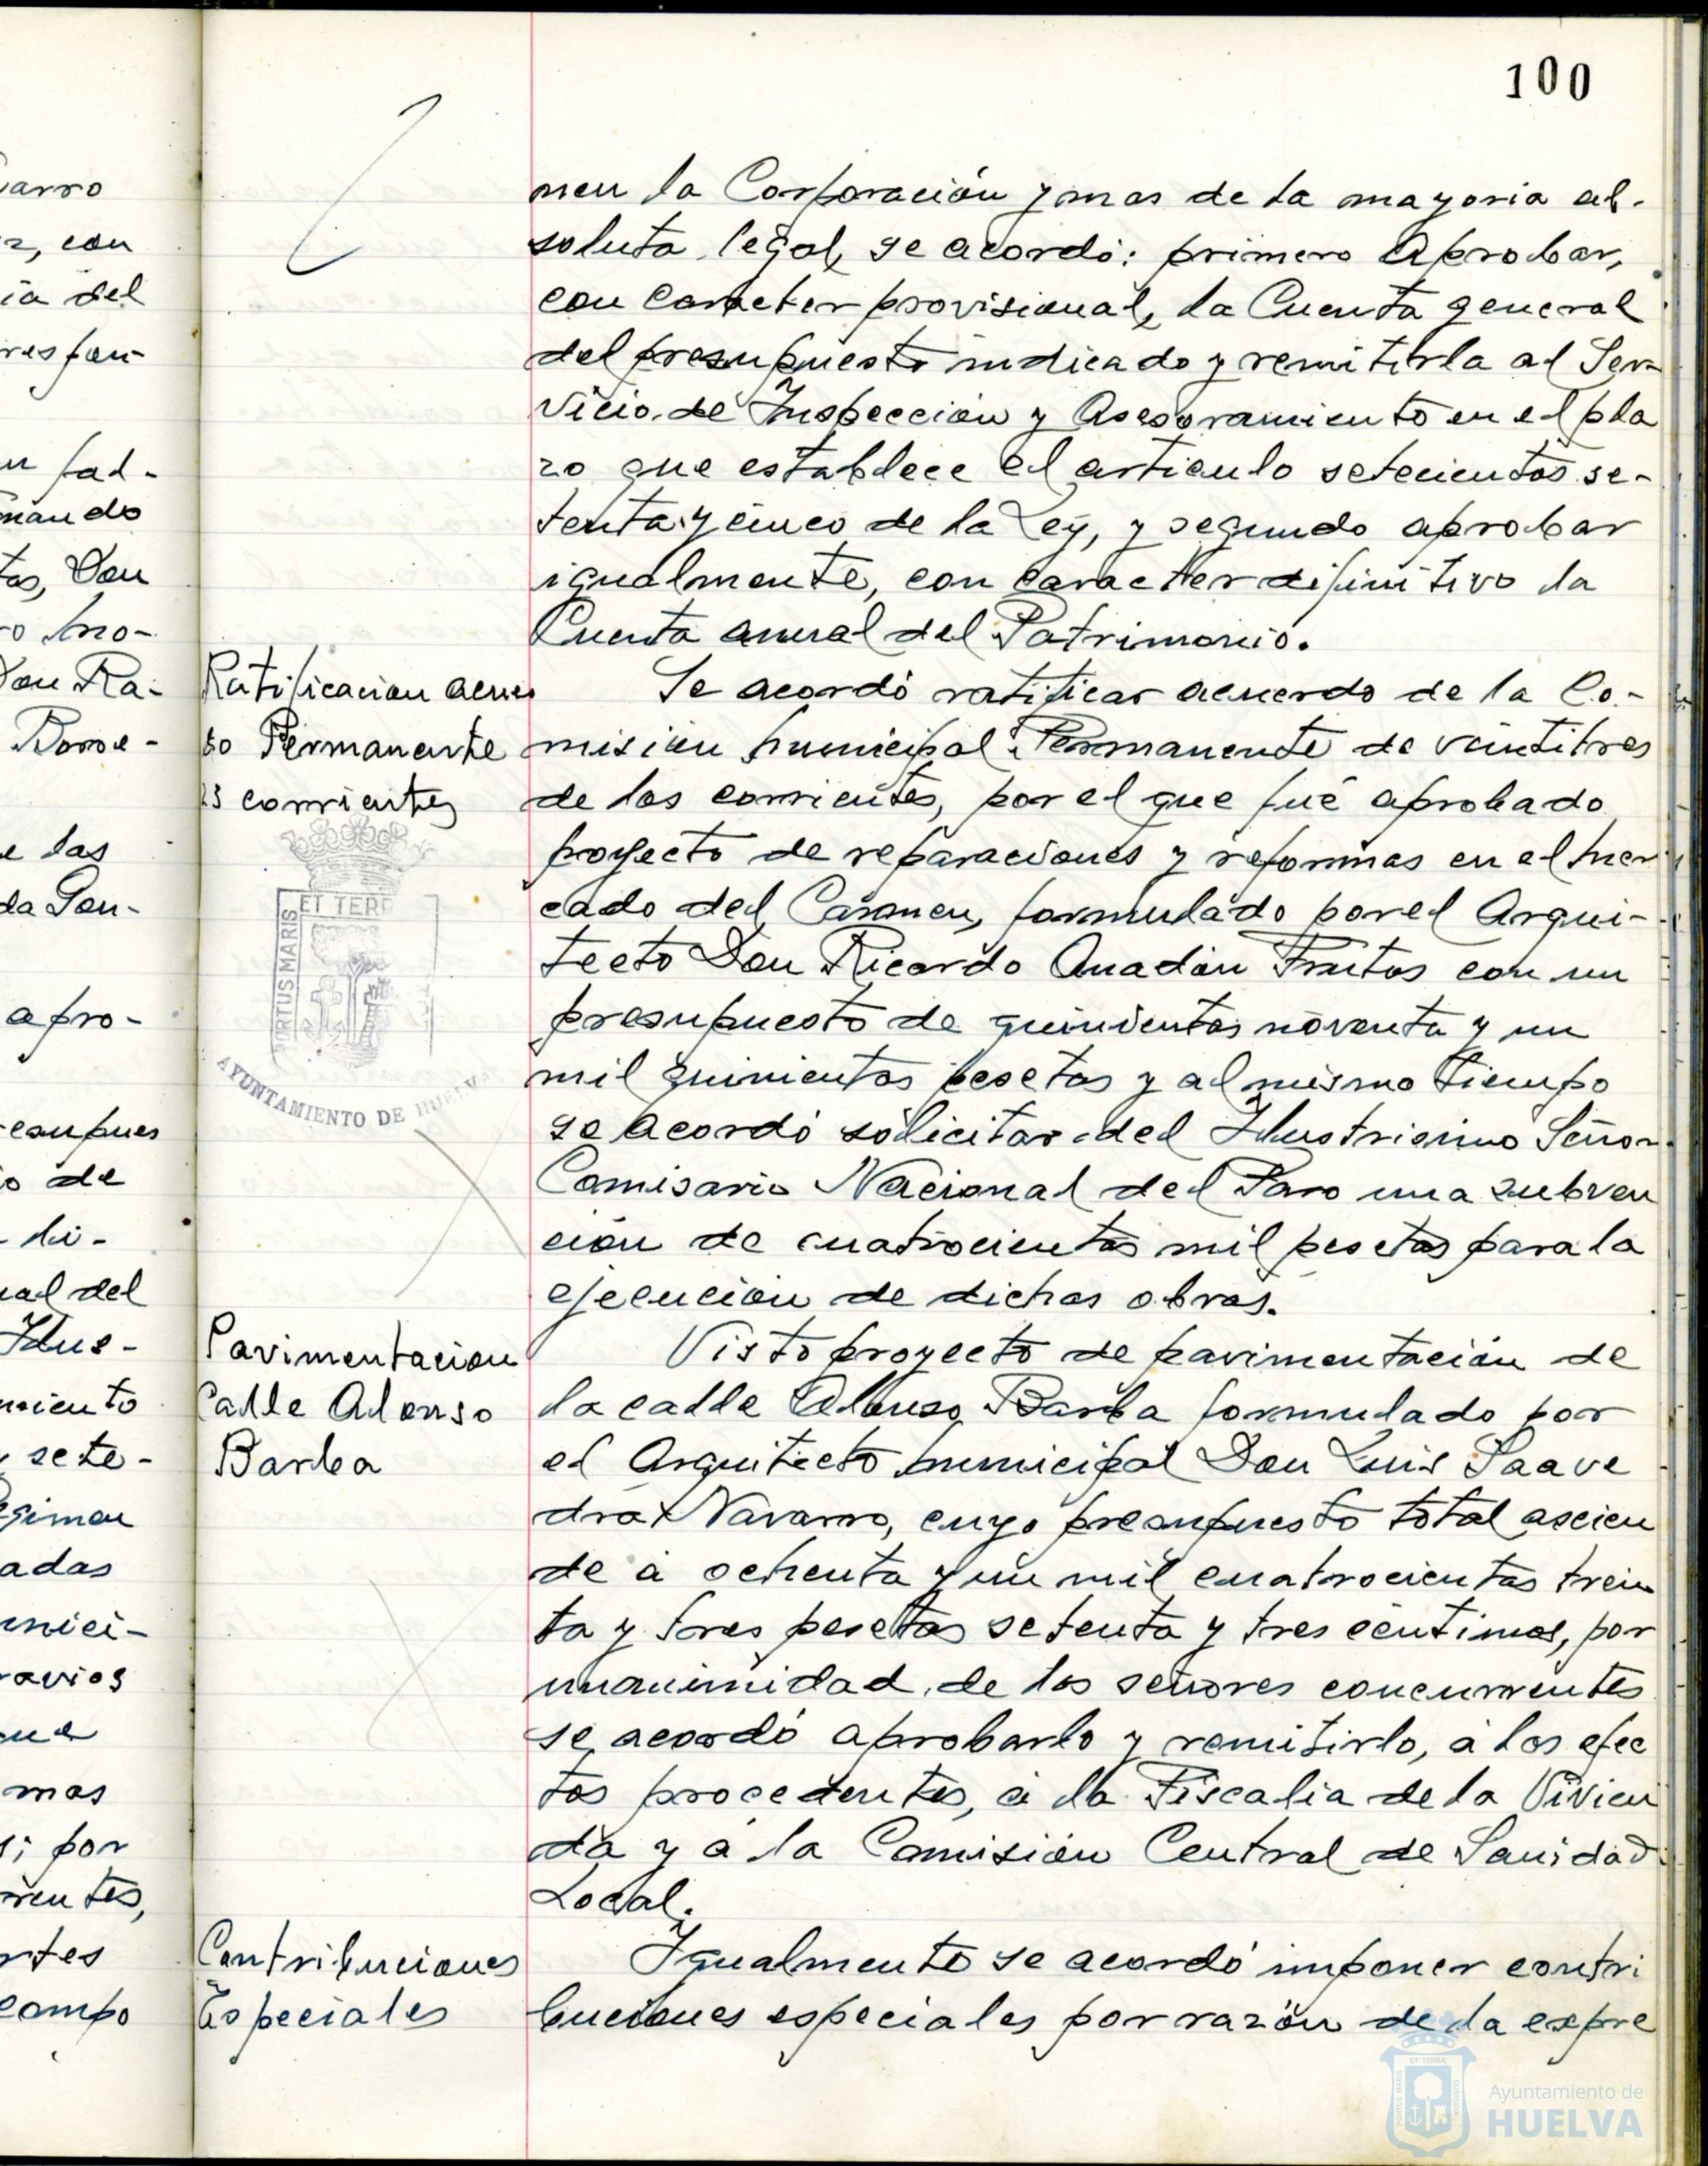 100
arro
z, con
ia del
respon-
n fal-
mando
tos, Don
o Mo-
Don Ra-
Borre-
e las
da Gon-
apro-
compues
o de
di-
ual del
Ilus-
miento
y sete-
egimen
adas
unici-
ravios
que
mas
s; por
rrentes,
rtes
campo
nen la Corporación y mas de la mayoria ab-
soluta legal, se acordó: primero Aprobar,
con caracter provisional, la Cuenta general
del presupuesto indicado y remitirla al Ser-
vicio de Inspección y Asesoramiento en el pla
zo que establece el articulo setecientos se-
tenta y cinco de la Ley, y segundo aprobar
igualmente, con caracter difinitivo la
Cuenta anual del Patrimonio.
Ratificacion acuer
do Permanente
23 corrientes
Se acordó ratificar acuerdo de la Co-
misión Municipal Permanente de veintitres
de los corrientes, por el que fué aprobado
proyecto de reparaciones y reformas en el Mer
cado del Carmen, formulado por el Arqui-
tecto Don Ricardo Anadón Frutos con un
presupuesto de quinientas noventa y un
mil quinientas pesetas y al mismo tiempo
se acordó solicitar del Ilustrisimo Señor
Comisario Nacional del Paro una subven
ción de cuatrocientas mil pesetas para la
ejecución de dichas obras.
ET TERR
PORTUS MARIS
AYUNTAMIENTO DE HUELVA
Pavimentacion
Calle Alonso
Barba
Visto proyecto de pavimentación de
la calle Alonso Barba formulado por
el Arquitecto Municipal Don Luis Saave
dra Navarro, cuyo presupuesto total ascien
de á ochenta y un mil cuatrocientas trein
ta y tres pesetas setenta y tres céntimos, por
unanimidad de los señores concurrentes
se acordó aprobarlo y remitirlo, á los efec
tos procedentes, á la Fiscalia de la Vivien
da y á la Comisión Central de Sanidad
Local.
Contribuciones
Especiales
Igualmente se acordó imponer contri
buciones especiales por razón de la expre
Ayuntamiento de
HUELVA